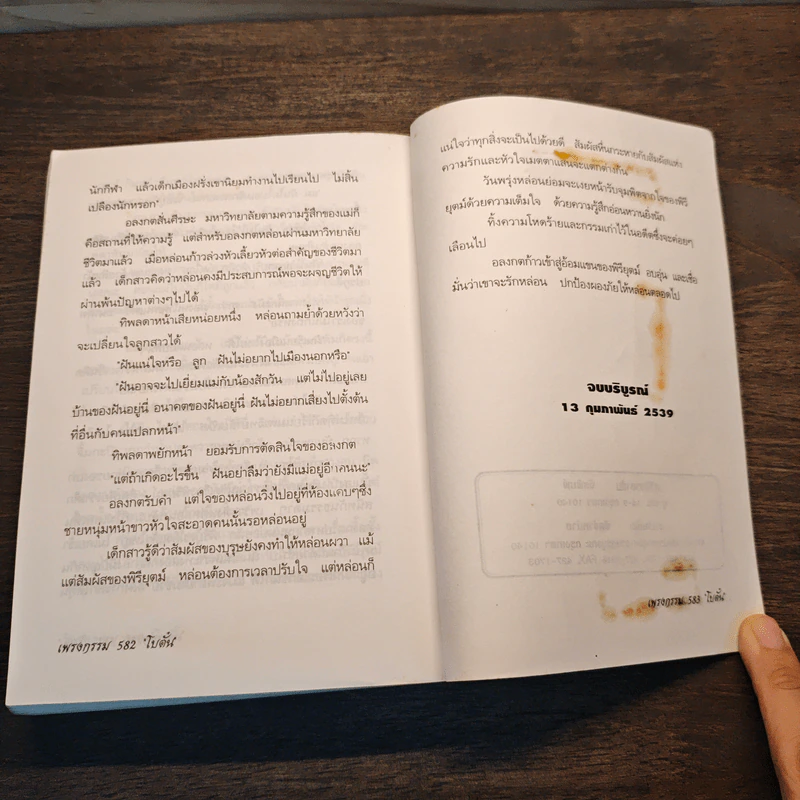 นักกีฬา แล้วเด็กเมืองฝรั่งเขานิยมทำงานไปเรียนไป ไม่สิ้น
เปลืองนักหรอก"
อลงกตสั่นศีรษะ มหาวิทยาลัยตามความรู้สึกของแม่ก็
คือสถานที่ให้ความรู้ แต่สำหรับอลงกตหล่อนผ่านมหาวิทยาลัย
ชีวิตมาแล้ว เมื่อหล่อนก้าวล่วงหัวเลี้ยวหัวต่อสำคัญของชีวิตมา
แล้ว เด็กสาวคิดว่าหล่อนคงมีประสบการณ์พอจะผจญชีวิตให้
ผ่านพ้นปัญหาต่างๆไปได้
ทิพลดาหน้าเสียหน่อยหนึ่ง หล่อนถามย้ำด้วยหวังว่า
จะเปลี่ยนใจลูกสาวได้
"ฝันแน่ใจหรือ ลูก ฝันไม่อยากไปเมืองนอกหรือ"
"ฝันอาจจะไปเยี่ยมแม่กับน้องสักวัน แต่ไม่ไปอยู่เลย
บ้านของฝันอยู่นี่ อนาคตของฝันอยู่นี่ ฝันไม่อยากเสี่ยงไปตั้งต้น
ที่อื่นกับคนแปลกหน้า"
ทิพลดาพยักหน้า ยอมรับการตัดสินใจของอลงกต
"แต่ถ้าเกิดอะไรขึ้น ฝันอย่าลืมว่ายังมีแม่อยู่อีกคนนะ"
อลงกตรับคำ แต่ใจของหล่อนวิ่งไปอยู่ที่ห้องแคบๆซึ่ง
ชายหนุ่มหน้าขาวหัวใจสะอาดคนนั้นรอหล่อนอยู่
เด็กสาวรู้ดีว่าสัมผัสของบุรุษยังคงทำให้หล่อนผวา แม้
แต่สัมผัสของพิรียุตม์ หล่อนต้องการเวลาปรับใจ แต่หล่อนก็
เพรงกรรม 582 "โบตั๋น"
แน่ใจว่าทุกสิ่งจะเป็นไปด้วยดี สัมผัสหื่นกระหายกับสัมผัสแห่ง
ความรักและหัวใจเมตตาแสนจะแตกต่างกัน
วันพรุ่งหล่อนย่อมจะเงยหน้ารับจุมพิตจากใจของพิรี
ยุตม์ด้วยความเต็มใจ ด้วยความรู้สึกอ่อนหวานยิ่งนัก
ทิ้งความโหดร้ายและกรรมเก่าไว้ในอดีตซึ่งจะค่อยๆ
เลือนไป
อลงกตก้าวเข้าสู่อ้อมแขนของพิรียุตม์ อบอุ่น และเชื่อ
มั่นว่าเขาจะรักหล่อน ปกป้องผองภัยให้หล่อนตลอดไป
จบบริบูรณ์
13 กุมภาพันธ์ 2539
เพรงกรรม 583 "โบตั๋น"